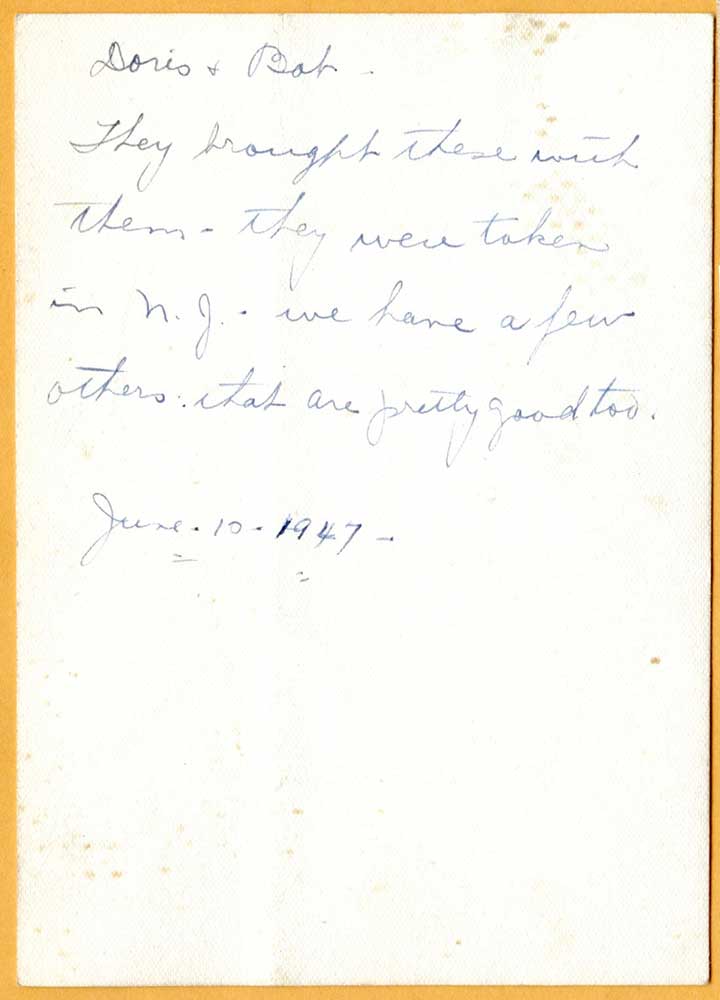 Doris + Bob -
They brought these with
them - they were taken
in N.J. - we have a few
others that are pretty good too.
June - 10 - 1947 -